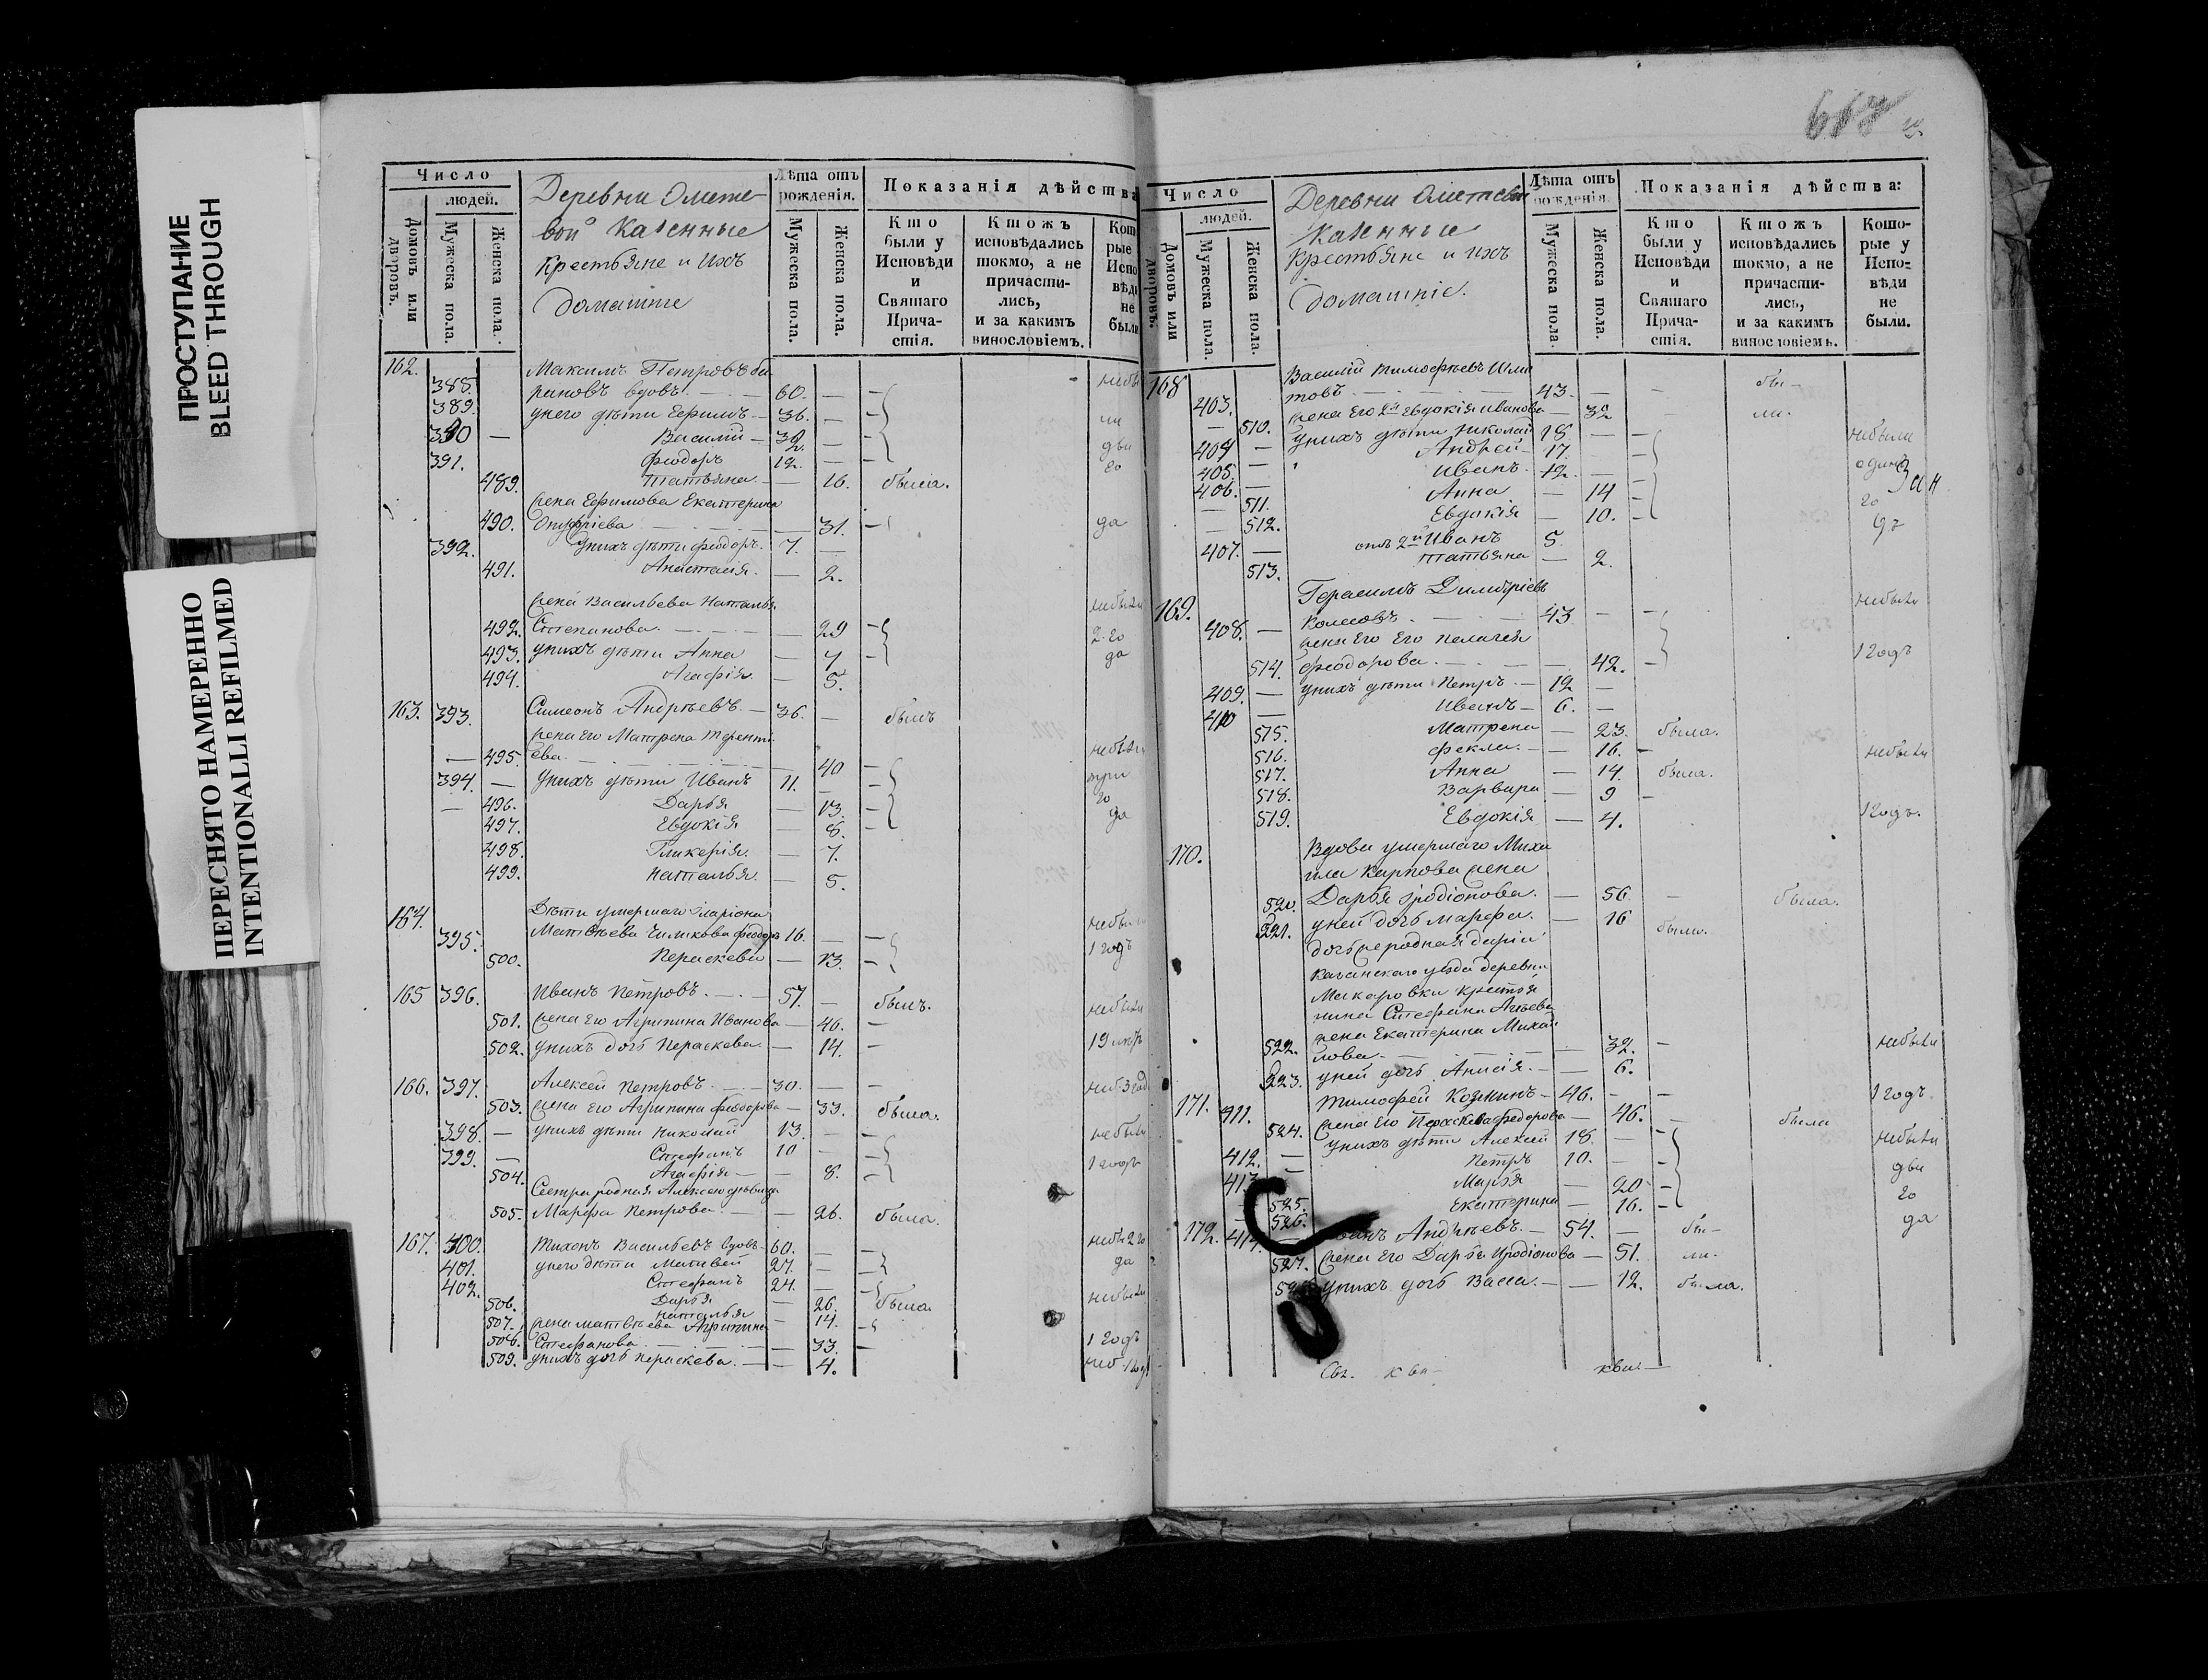 ПРОСТУПАНИЕ
BLEED THROUGH
ПЕРЕСНЯТО НАМЕРЕННО
INTENTIONALLI REFILMED
Число
людей.
Домовъ или дворовъ.
Мужеска пола.
Женска пола.
Деревни Омете-
вой Казенные
Крестьяне и ихъ
домашніе
Лѣта отъ рожденія.
Мужеска пола.
Женска пола.
Показанія дѣйства
Кто были у Исповѣди и Святаго Прича-стія.
Ктожъ исповѣдались токмо, а не причасти-лись, и за какимъ винословіемъ.
Кото рые Испо вѣди не были
162. Максимъ Петровъ
385. риновъ вдовъ. 60. —
389. унего дѣти Ефимъ — 36. —
390 — Василий — 32. —
391. Феодоръ 12. —
489. Татьяна — 16. была.
жена Ефимова Екатерина
490. Онуфріева — 31. — да
392. унихъ дѣти Феодоръ. 7. —
491. Анастасія. — 2.
жена Васильева Наталья небыли
492. Степанова. — 29 2 го
493. унихъ дѣти Анна — 7 да
494. Агафія — 5.
163. 393. Симеонъ Андреевъ. — 36. — былъ
жена его Матрена Теренті-
— 495. ева. — 40 небыли
394. — унихъ дѣти Иванъ 11. — три
— 496. Дарья — 13. го
497. Евдокія — 8. да
498. Гликерія. — 7.
499. Наталья. — 5.
164. Дѣти умершаго Иларіона небыли
395. Матвѣева Чиликова Феодоръ 16. — 1 годъ
500. Параскева — 13.
165 396. Иванъ Петровъ. — 57. — былъ.
501. жена его Агрипина Иванова — 46. — небыли
502. унихъ дочь Параскева. — 14. —
166. 397. Алексей Петровъ. — 30. — — неб. 3 год
503. жена его Агрипина Феодорова — 33. была.
398. — унихъ дѣти Николай 13. — небыли
399. — Стефанъ 10 — 1 годъ
504. Агафія — — 8.
Сестра родная Алексею дѣвица
505. Марфа Петрова. — — 26. была.
167. 400. Тихонъ Васильевъ вдовъ — 60. — небы 2 го
401. унего дѣти Матвей 27. — да
402. Стефанъ 24. —
506. Дарья — 26. была. небыли
507. Наталья — 14. —
жена Матвѣева Агрипина
508. Стефанова. — 33. — 1 годъ
509. унихъ дочь Параскева. — — 4. неб. 1 годъ
Число
людей.
Домовъ или дворовъ.
Мужеска пола.
Женска пола.
Деревни Ометевой
Казенные
Крестьяне и ихъ
домашніе.
Лѣта отъ рожденія.
Мужеска пола.
Женска пола.
Показанія дѣйства:
Кто были у Исповѣди и Святаго Прича-стія.
Ктожъ исповѣдались токмо, а не причасти-лись, и за какимъ винословіемъ.
Кото-рые у Испо-вѣди не были.
168 Василий Тимофѣевъ
403. товъ — 43. — — бы-
— 510. жена его 2я Евдокія Иванова — 32 ли.
404 — унихъ дѣти Николай 18 — небыли
405. — Андрей — 17. одинъ
406. — Иванъ — 12. —
— 511. Анна — 14 го
— 512. Евдокія — 10. дъ
407. — отъ 2й Иванъ 5.
513. Татьяна — 2.
169. Герасимъ Димитріевъ
408. — 43 — небыли
жена его его Пелагея
514. Феодорова. — 42. — 1 годъ
409. — унихъ дѣти Петръ — 12 —
410 — Иванъ — 6. —
515. Матрена — 23. была.
516. Фекла. — 16. — небыли
517. Анна — 14. была.
518. Варвара — 9 —
519. Евдокія — 4. 1 годъ.
170. Вдова умершаго Миха
ила Карпова жена
520. Дарья Иродіонова. — 56 — была.
521. уней дочь Марфа. — 16 была.
Казанскаго уѣзда деревни
Макаровки крестья
нина Стефана
жена Екатерина Михай
522. лова — 32. — небыли
523. уней дочь Анисія. — — 6.
171. 411. Тимофей Козминъ — 46. — — 1 годъ
524. жена его Параскева Федорова — 46. — были
412. — унихъ дѣти Алексей 18. — небыли
413. Петръ 10. — два
525. Марья — 20 — го
526. Екатерина — 16. — да
172. 414. Андреевъ. — 54. — бы-
527. жена его Дарья Иродіонова — 51. ли.
унихъ дочь Васса. — — 12. была.